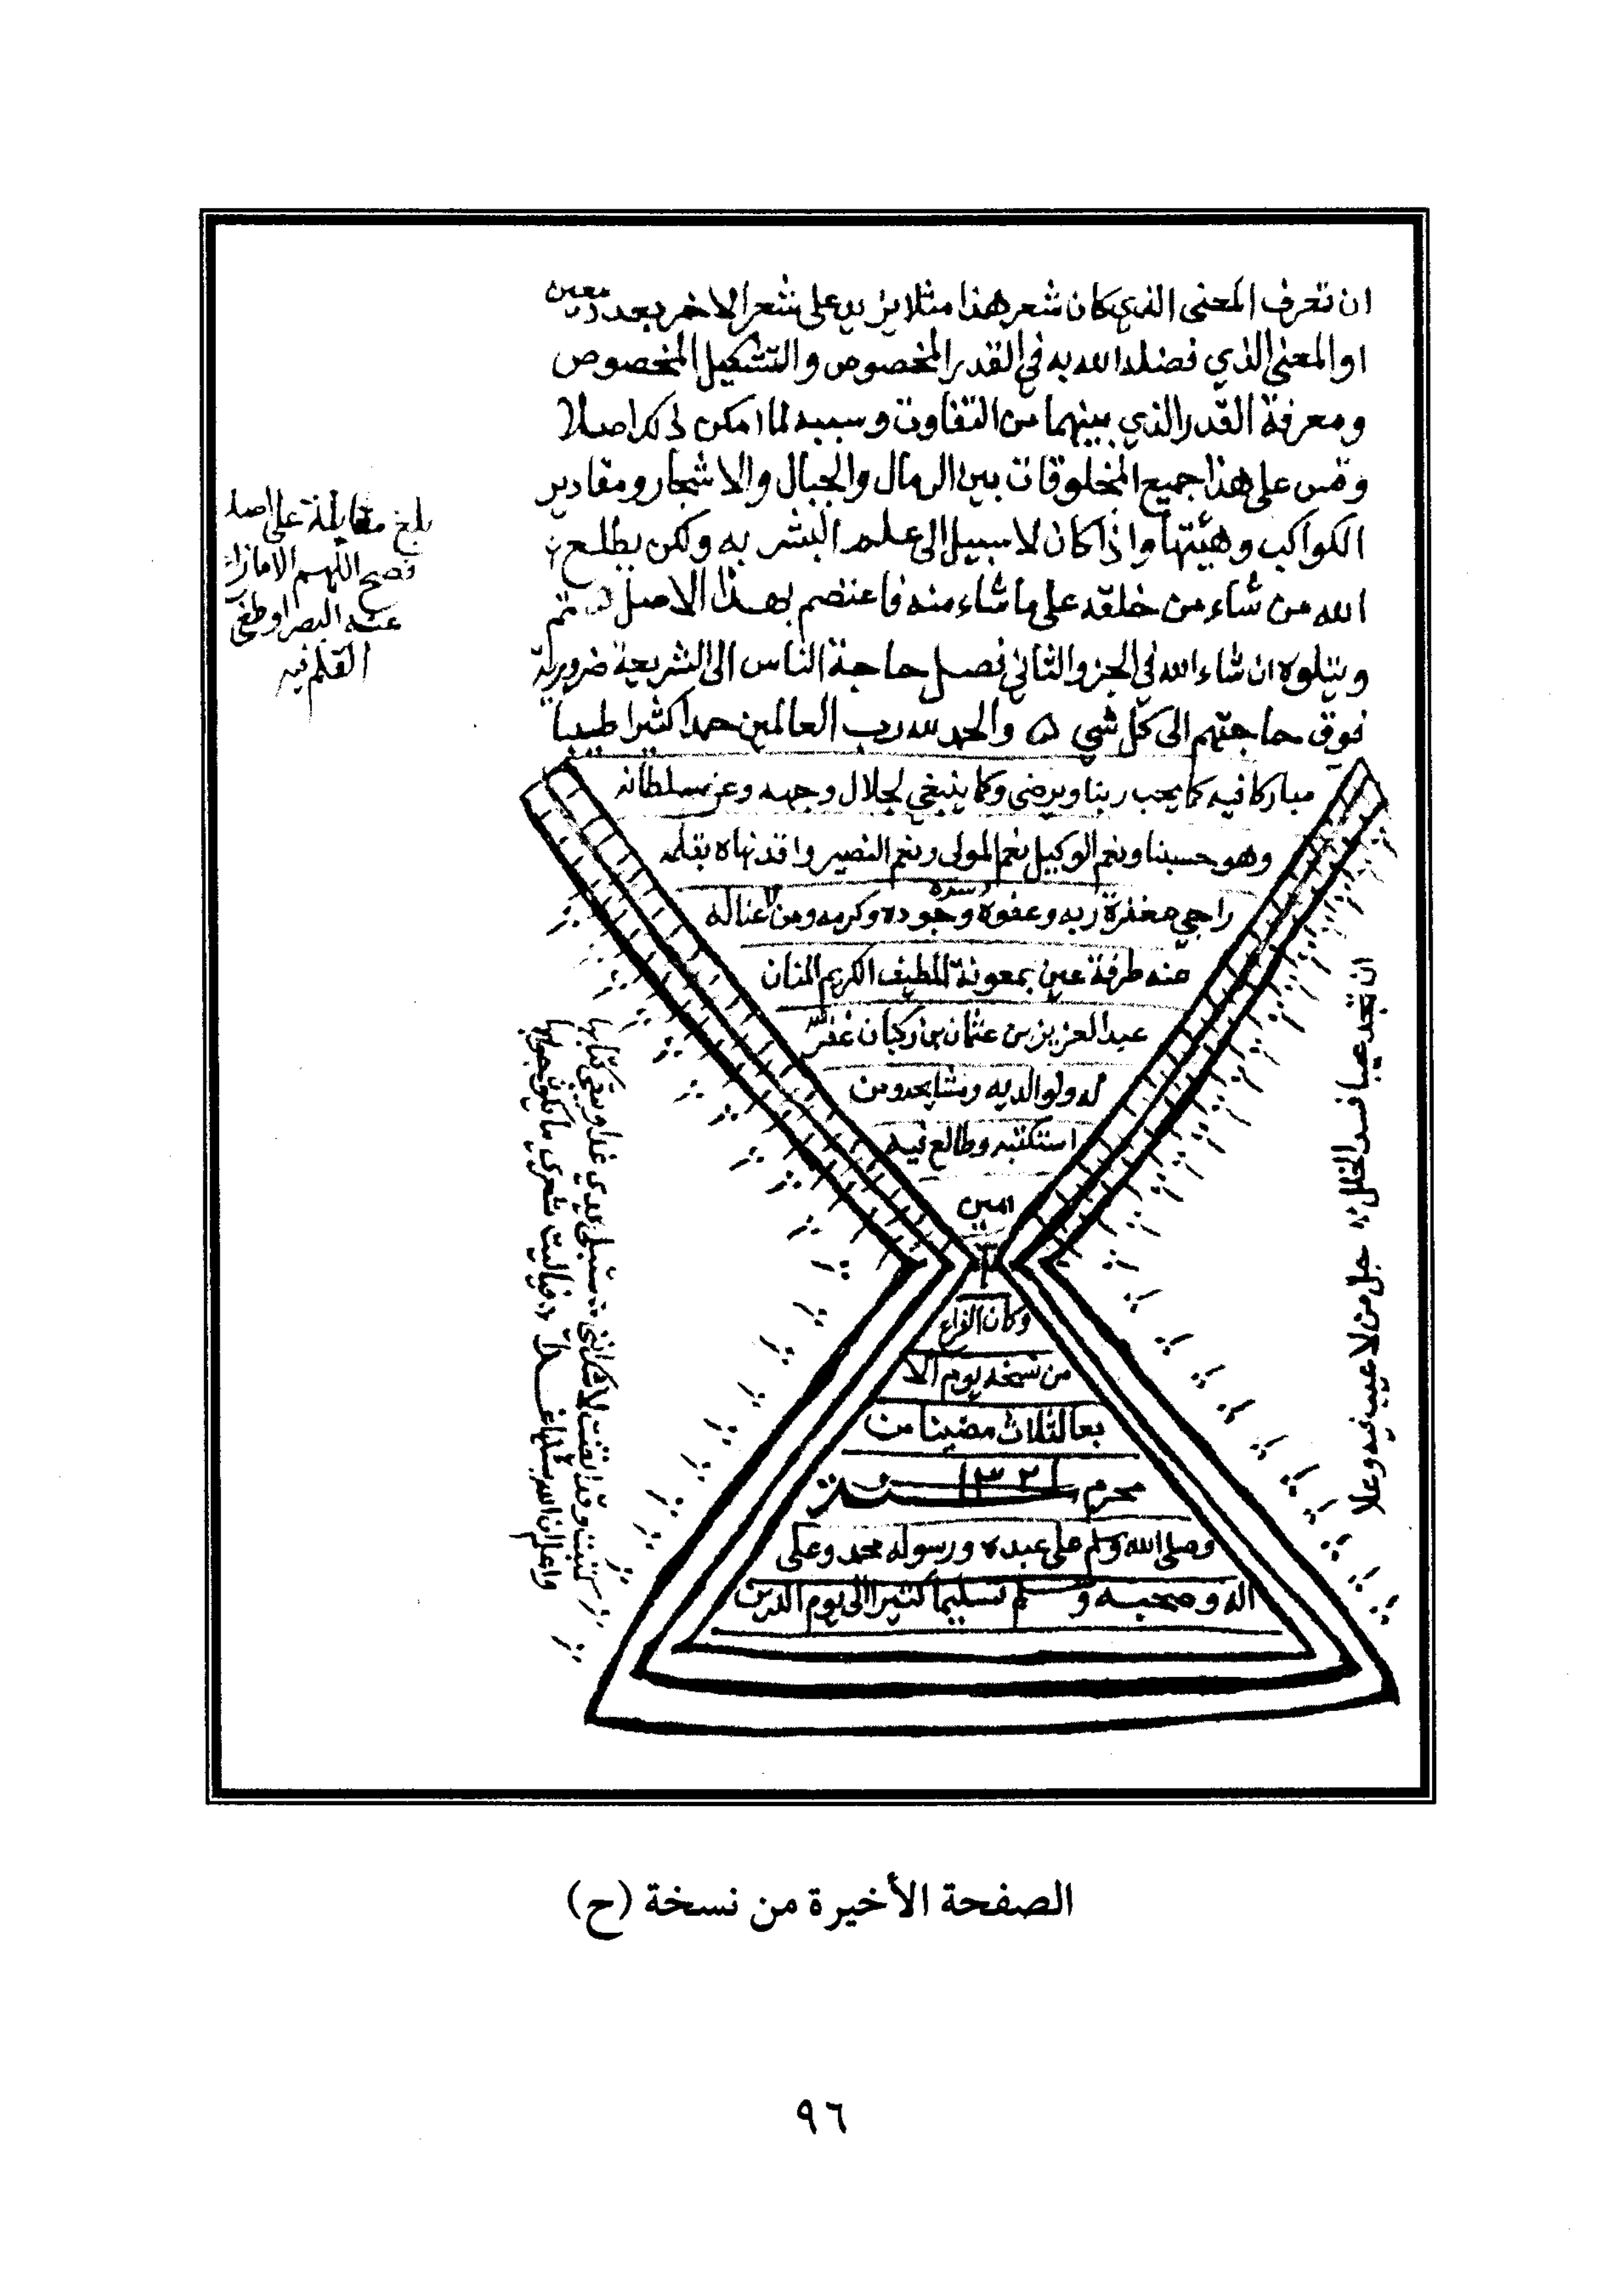 ان تعرف المعنى الذي كان شعر هذا مثلا يزيد على شعر الاخر بعدد معين
او المعنى الذي فضله الله به في القدر المخصوص والتشكيل المخصوص
ومعرفة القدر الذي بينهما من التفاوت وسببه لما امكن ذلك اصلا
وقس على هذا جميع المخلوقات بين الرمال والجبال والاشجار ومقادير
الكواكب وهيئتها واذا كان لا سبيل الى علم البشر به ولكن يطلع
الله من شاء من خلقه على ما شاء منه فاعتصم بهذا الاصل تم
ويتلوه ان شاء الله في الجزو الثاني فصل حاجة الناس الى الشريعة ضرورية
فوق حاجتهم الى كل شي ٥ والحمد لله رب العالمين حمدا كثيرا طيبا
مباركا فيه كما يحب ربنا ويرضى وكما ينبغي لجلال وجهه وعز سلطانه
وهو حسبنا ونعم الوكيل نعم المولى ونعم النصير بقلمه
راجي مغفرة ربه وعفوه وستره وجوده وكرمه ومن لا غنا له
عنه طرفة عين بمعونة اللطيف الكريم المنان
عبد العزيز بن عثمان بن ركبان غفر الله
له ولوالديه ومشايخه ومن
استكتبه وطالع فيه
امين
٣
وكان الفراغ
من نسخه يوم الا
ربعا لثلاث مضينا من
محرم سنة ١٣٢١
وصلى الله وسلم على عبده ورسوله محمد وعلى
اله وصحبه وسلم تسليما كثيرا الى يوم الدين
بلغ مقابلة على اصله
فصح اللهم الا ما زاغ
عنه البصر او طغى
القلم فيه
ان تجد عيبا فسد الخللا جل من لا عيب فيه وعلا
كتبت وقد ايقنت لا شك انني ستبلى يدي غدا ويبقى كتابها
واعلم ان الله سيسألها غدا فياليت شعري ما يكون جوابها
الصفحة الأخيرة من نسخة (ح)
٩٦